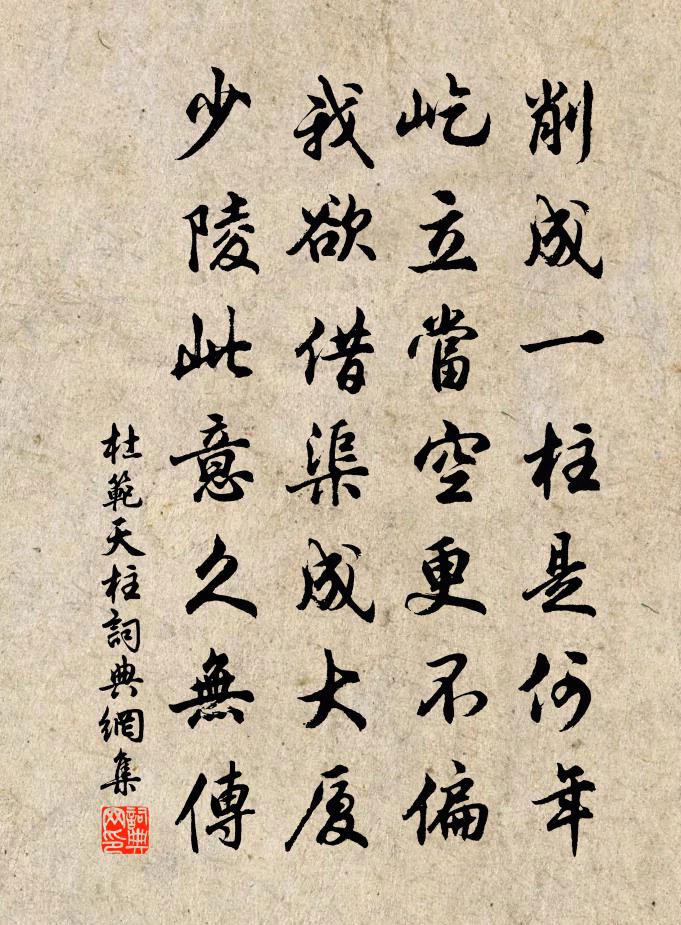 削成一柱是何年
屹立當空更不偏
我欲借渠成大厦
少陵此意久無傳
杜範天柱詞典網集
詞典網印